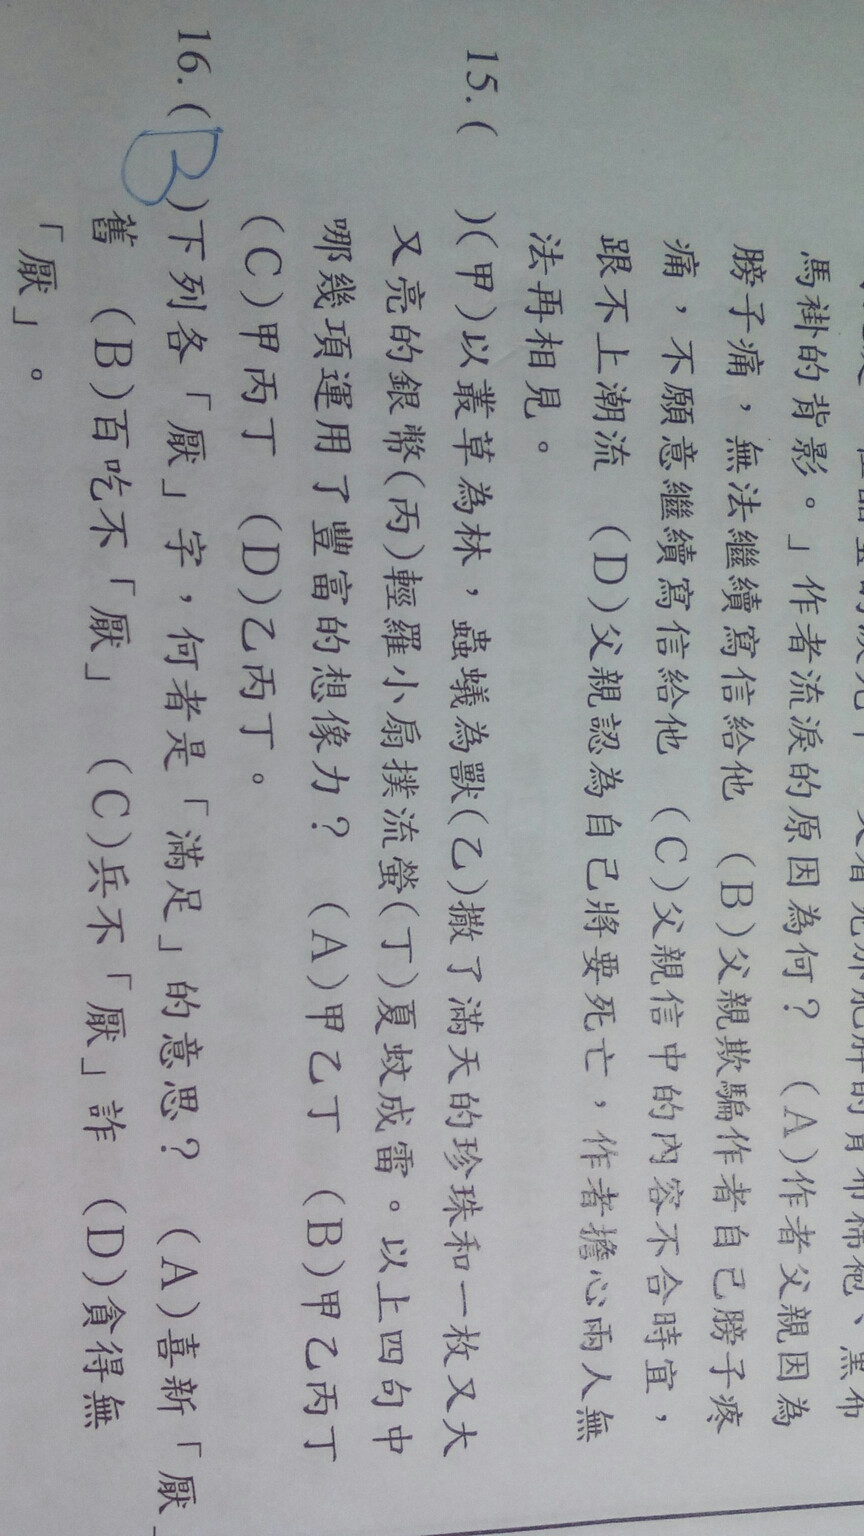 馬褂的背影。」作者流淚的原因為何？ (A)作者父親因為
膀子痛，無法繼續寫信給他 (B)父親欺騙作者自己膀子疼
痛，不願意繼續寫信給他 (C)父親信中的內容不合時宜，
跟不上潮流 (D)父親認為自己將要死亡，作者擔心兩人無
法再相見。
15.( )(甲)以叢草為林，蟲蟻為獸(乙)撒了滿天的珍珠和一枚又大
又亮的銀幣(丙)輕羅小扇撲流螢(丁)夏蚊成雷。以上四句中
哪幾項運用了豐富的想像力？ (A)甲乙丁 (B)甲乙丙丁
(C)甲丙丁 (D)乙丙丁。
16.(B)下列各「厭」字，何者是「滿足」的意思？ (A)喜新「厭」
舊 (B)百吃不「厭」 (C)兵不「厭」詐 (D)貪得無
「厭」。